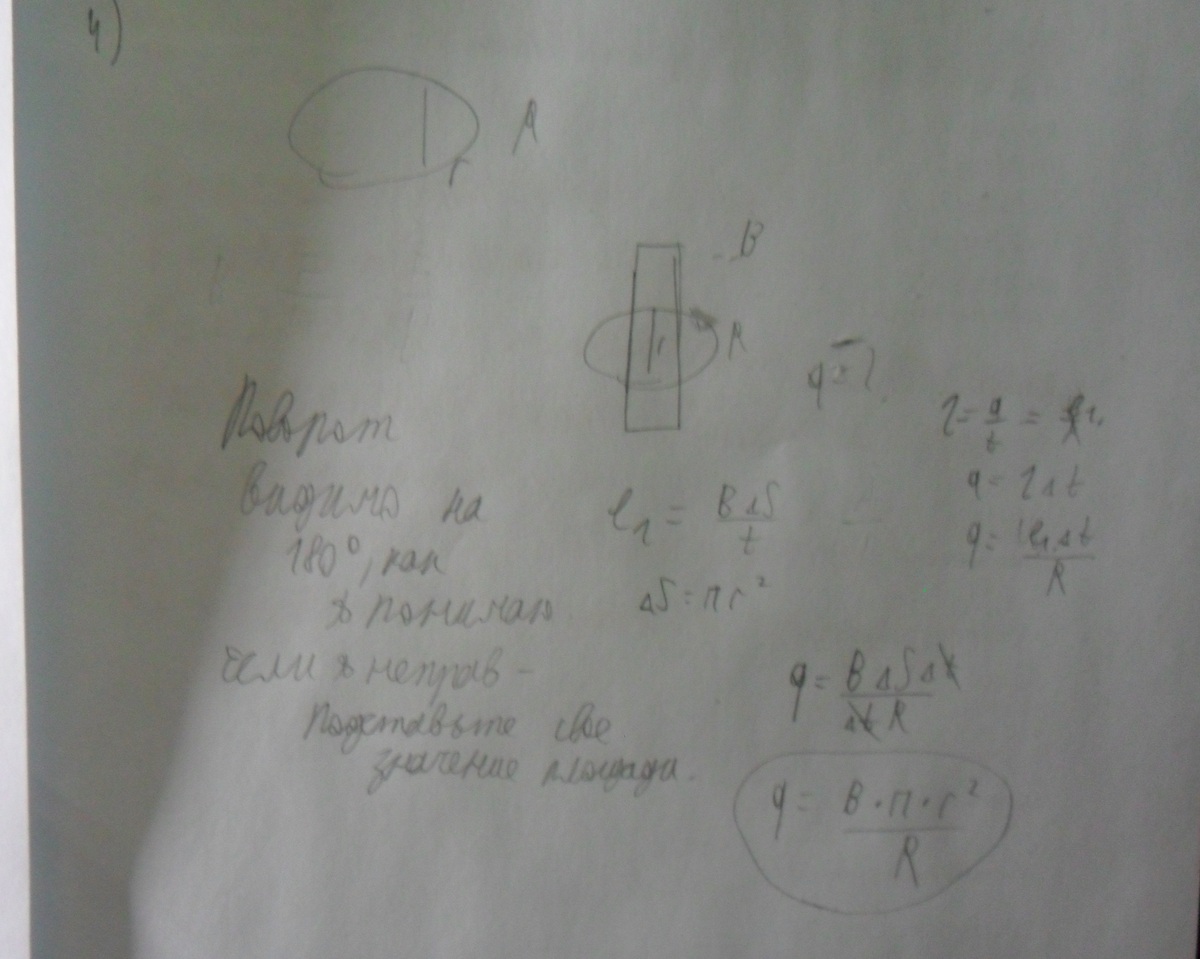 4)
R
B
R
q = ?
Поворот
видимо на
180°, как
я понимаю
Если я неправ -
подставьте свое
значение площади.
e₁ = BΔS/t
ΔS = πr²
I = q/t =
q = IΔt
q = e₁Δt/R
q = BΔSΔt/ΔtR
q = B·π·r²/R